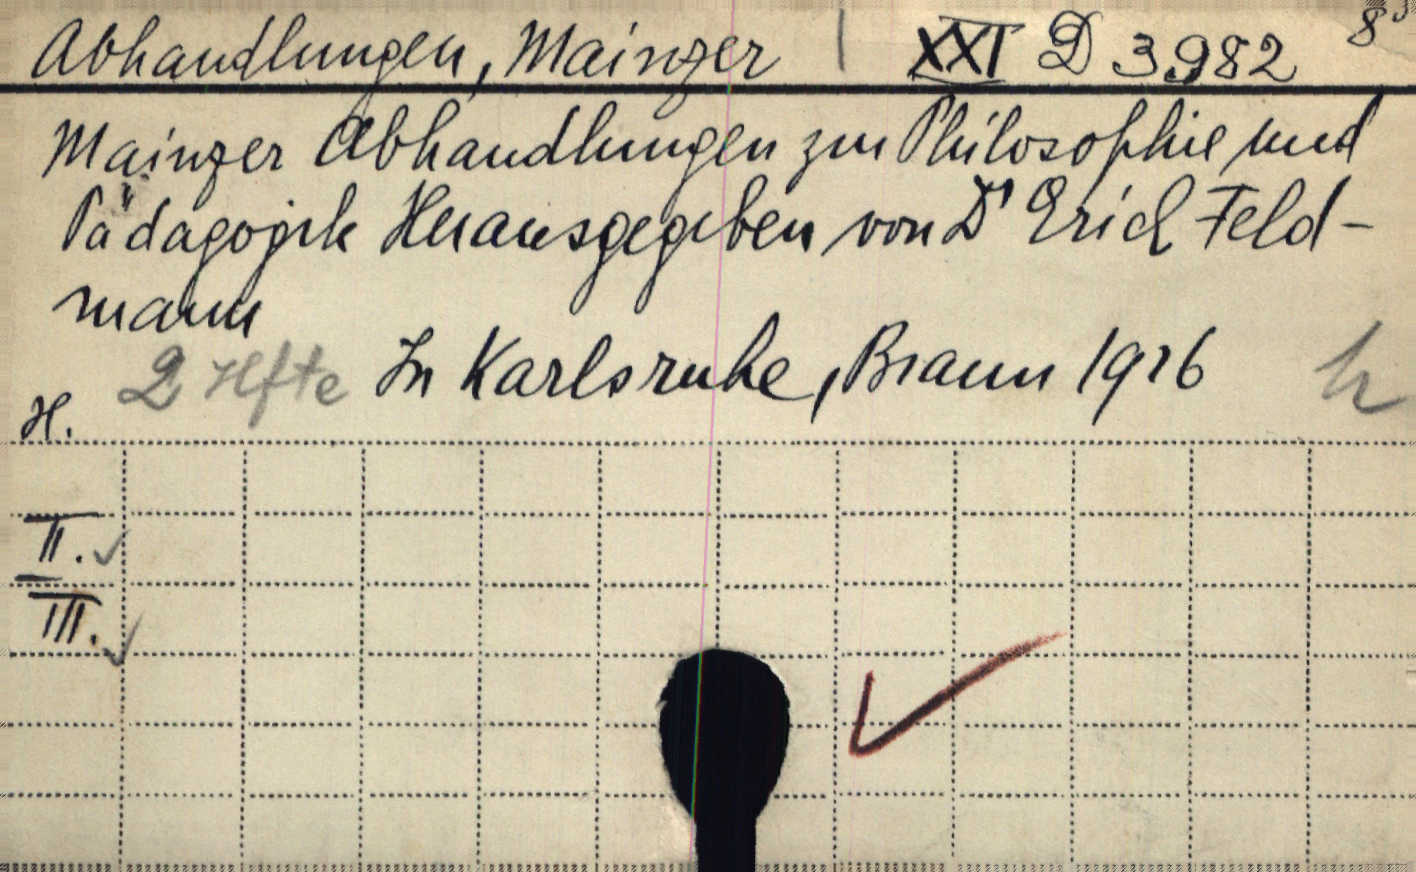 Abhandlungen, Mainzer | XXI D 3982 8°
Mainzer Abhandlungen zur Philosophie und
Pädagogik Herausgegeben von Dr Erich Feld-
mann
2 Hfte In Karlsruhe, Braun 1926 h
H.
II. ✓
III. ✓